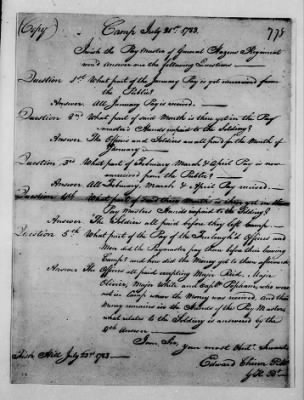 (Copy) Camp July 21st 1783. 778
Wish the Pay Master of General Hazens Regiment
wou'd Answer me the following Questions
Question 1st What part of the January Pay is yet unreceived from
the Public?
Answer All January Pay is received.
Question 2nd What part of said Month is there yet in the Pay
master's Hands unpaid to the Soldiery?
Answer The Officers and Soldiers are all paid for the Month of
January
Question 3rd What part of February, March & April Pay is now
unreceived from the Public?
Answer All February, March & April Pay received.
Question 4th What part of said three Months is there yet in the
Pay Masters Hands unpaid to the Soldiery?
Answer The Soldiers all paid before they left Camp.
Question 5th What part of the Pay of the Furlough'd Officers and
Men did the Paymaster pay them before their leaving
Camp? and how did the Money get to them afterwards
Answer The Officers all paid excepting Major Reid, Major
Olivie, Major White and Capt. who were
not in Camp when the Money was received. And their
Money remains in the Hands of the Pay Master
what relates to the Soldiery is answered by the
4th Answer
I am, Sir, your most Obdt. Servant
Edward Chinn P.M.
July 22nd 1783